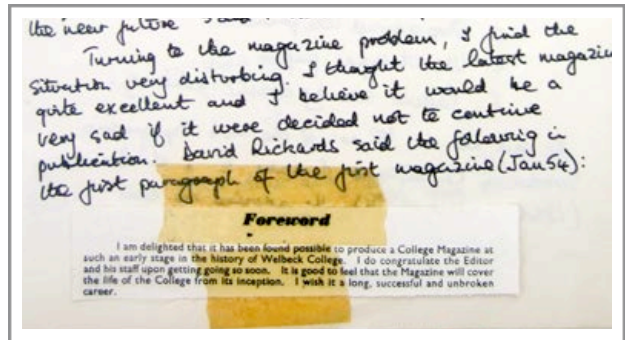 the near future
Turning to the magazine problem, I find the
situation very disturbing. I thought the latest magazin
quite excellent and I believe it would be a
very sad if it were decided not to continue
publication. David Richards said the following in
the first paragraph of the first magazine (Jan 54):
Foreword
I am delighted that it has been found possible to produce a College Magazine at
such an early stage in the history of Welbeck College. I do congratulate the Editor
and his staff upon getting going so soon. It is good to feel that the Magazine will cover
the life of the College from its inception. I wish it a long, successful and unbroken
career.